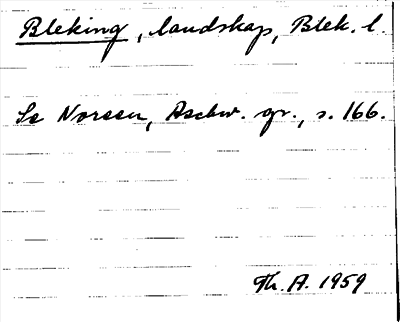 Bleking, landskap, Blek. l.
Se Noreen, Aschw. gr., s. 166.
Th. A. 1959